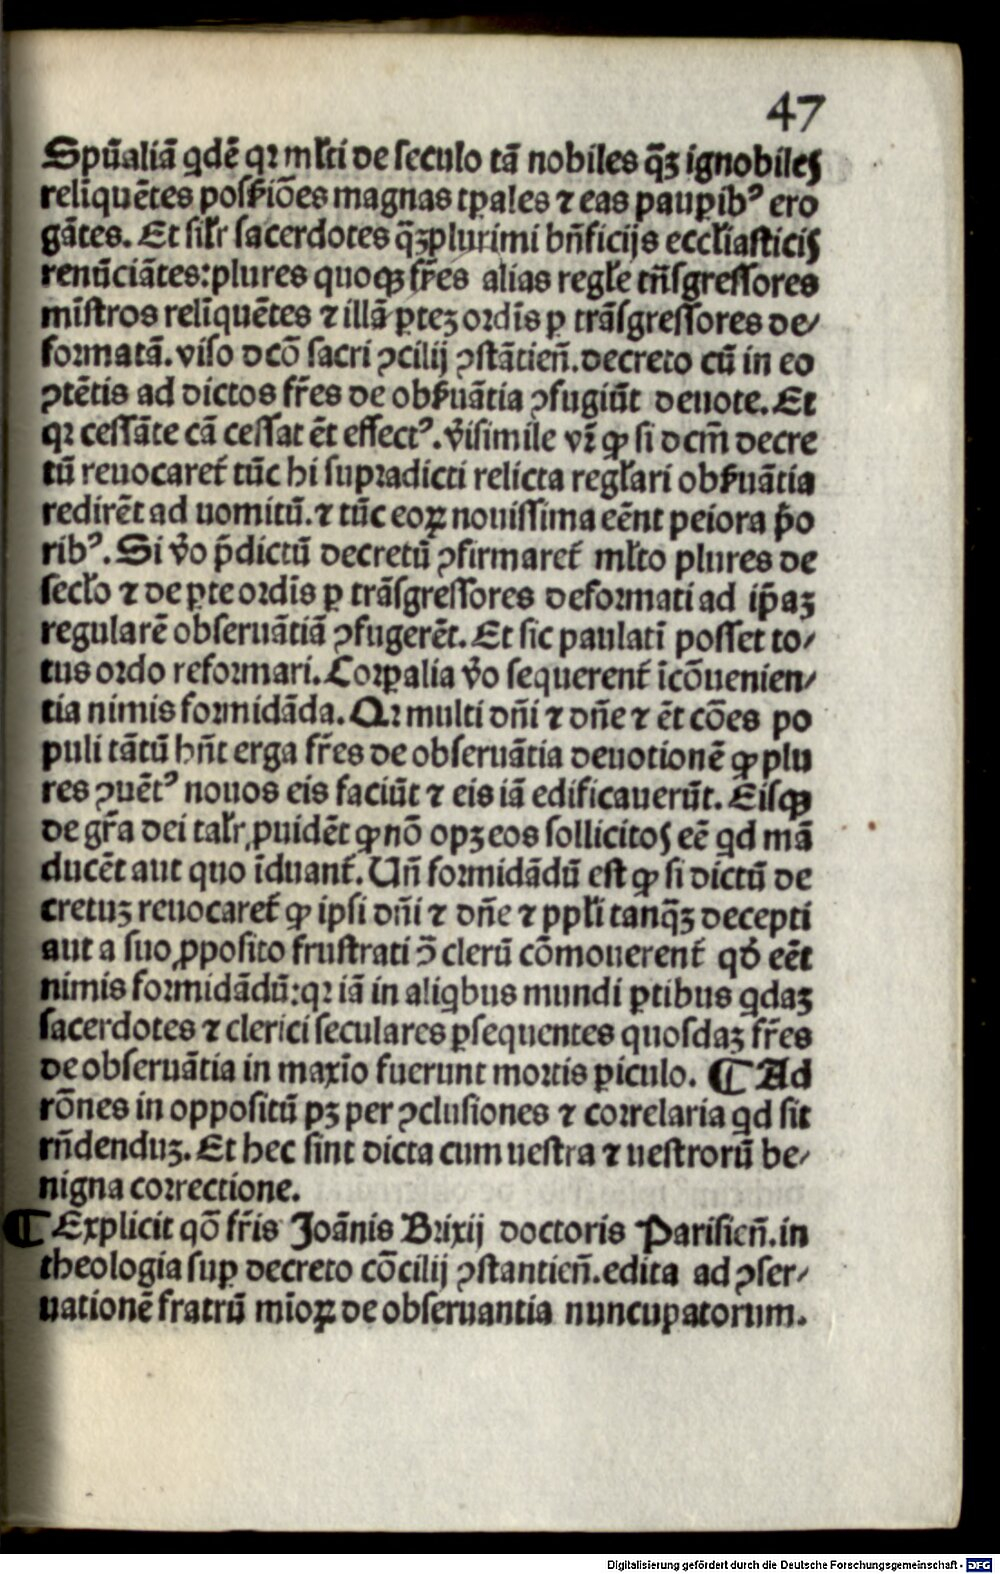 47
Spūaliā qdē qꝛ mĺti de seculo tā nobiles q̄ꝫ ignobiles
reliquētes possiōes magnas tꝑales ⁊ eas pauꝑibꝰ ero
gātes. Et silr sacerdotes q̄ꝫplurimi bn̄ficijs eccĺiasticis
renūciātes: plures quoqꝫ fr̄es alias regĺe trn̄sgressores
mīstros reliquētes ⁊ illā ꝑteꝫ ordīs ꝑ trāsgressores de⸗
formatā. viso dcō sacri ꝯcilij ꝯstātien̄. decreto cū in eo
ꝯtētis ad dictos fr̄es de obẜuātia ꝯfugiūt deuote. Et
qꝛ cessāte cā cessat ēt effectꝰ. v̓isimile vr̄ ꝙ si dcm̄ decre
tū reuocaret᷑ tūc hi supradicti relicta regĺari obẜuātia
redirēt ad uomitū. ⁊ tūc eoꝝ nouissima eēnt peiora p̄o
ribꝰ. Si v̓o p̄dictū decretū ꝯfirmaret᷑ mĺto plures de
secĺo ⁊ de ꝑte ordīs ꝑ trāsgressores deformati ad ip̄aꝫ
regularē obseruātiā ꝯfugerēt. Et sic paulatī posset to⸗
tus ordo reformari. Corꝑalia v̓o sequerent᷑ īcōuenien⸗
tia nimis formidāda. Qꝛ multi dn̄i ⁊ dn̄e ⁊ ēt cōes po
puli tātū hn̄t erga fr̄es de obseruātia deuotionē ꝙ plu
res ꝯuētꝰ nouos eis faciūt ⁊ eis iā edificauerūt. Eisqꝫ
de gr̄a dei talr ꝓuidēt ꝙ nō opꝫ eos sollicitos eē qd mā
ducēt aut quo īduant᷑. Un̄ formidādū est ꝙ si dictū de
cretuꝫ reuocaret᷑ ꝙ ipsi dn̄i ⁊ dn̄e ⁊ ppĺi tanq̄ꝫ decepti
aut a suo ꝓposito frustrati ꝯ̄ clerū cōmouerent᷑ qd̓ eēt
nimis formidādū: qꝛ iā in aliqbus mundi ꝑtibus qdaꝫ
sacerdotes ⁊ clerici seculares ꝑsequentes quosdaꝫ fr̄es
de obseruātia in maxīo fuerunt mortis ꝑiculo. ¶ Ad
rōnes in oppositū pꝫ per ꝯclusiones ⁊ correlaria qd sit
rn̄denduꝫ. Et hec sint dicta cum uestra ⁊ uestrorū be⸗
nigna correctione.
¶ Explicit qō fr̄is Joānis Brixij doctoris Parisien̄. in
theologia suꝑ decreto cōcilij ꝯstantien̄. edita ad ꝯser⸗
uationē fratrū mīoꝝ de obseruantia nuncupatorum.
Digitalisierung gefördert durch die Deutsche Forschungsgemeinschaft - DFG